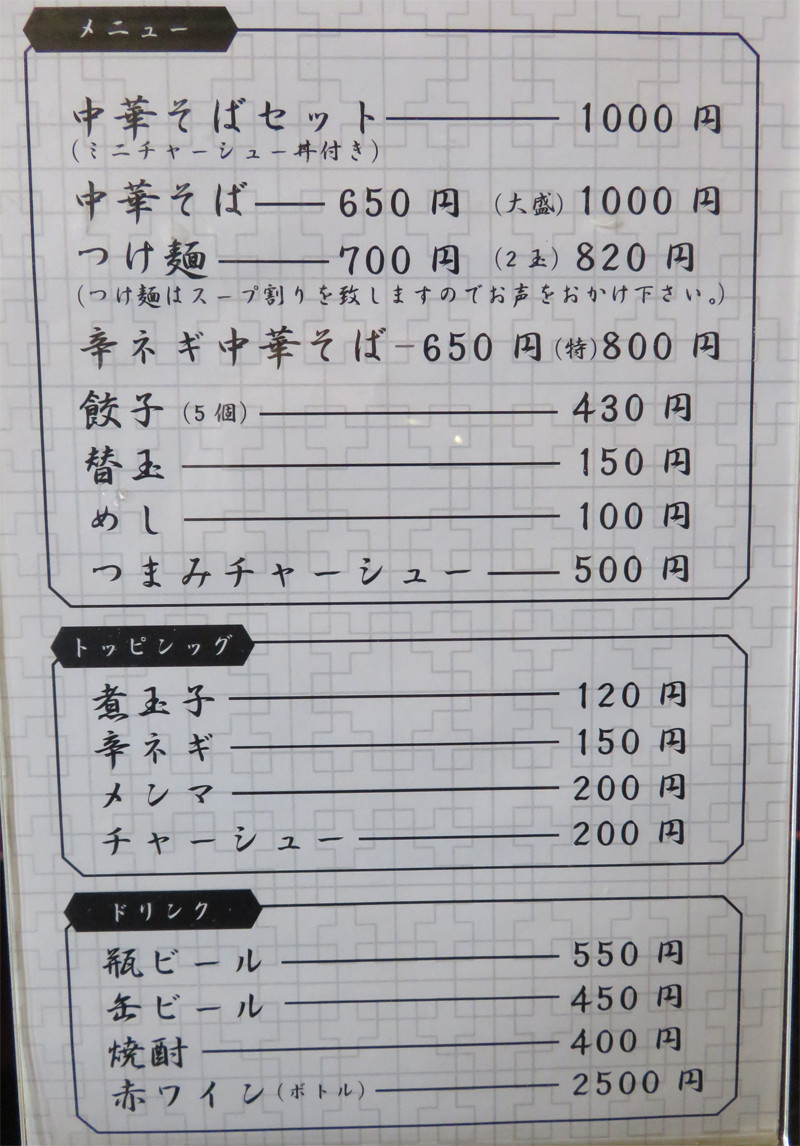 メニュー
中華そばセット 1000円
(ミニチャーシュー丼付き)
中華そば 650円 (大盛) 1000円
つけ麺 700円 (2玉) 820円
(つけ麺はスープ割りを致しますのでお声をおかけ下さい。)
辛ネギ中華そば 650円 (特) 800円
餃子 (5個) 430円
替玉 150円
めし 100円
つまみチャーシュー 500円
トッピンッグ
煮玉子 120円
辛ネギ 150円
メンマ 200円
チャーシュー 200円
ドリンク
瓶ビール 550円
缶ビール 450円
焼酎 400円
赤ワイン (ボトル) 2500円